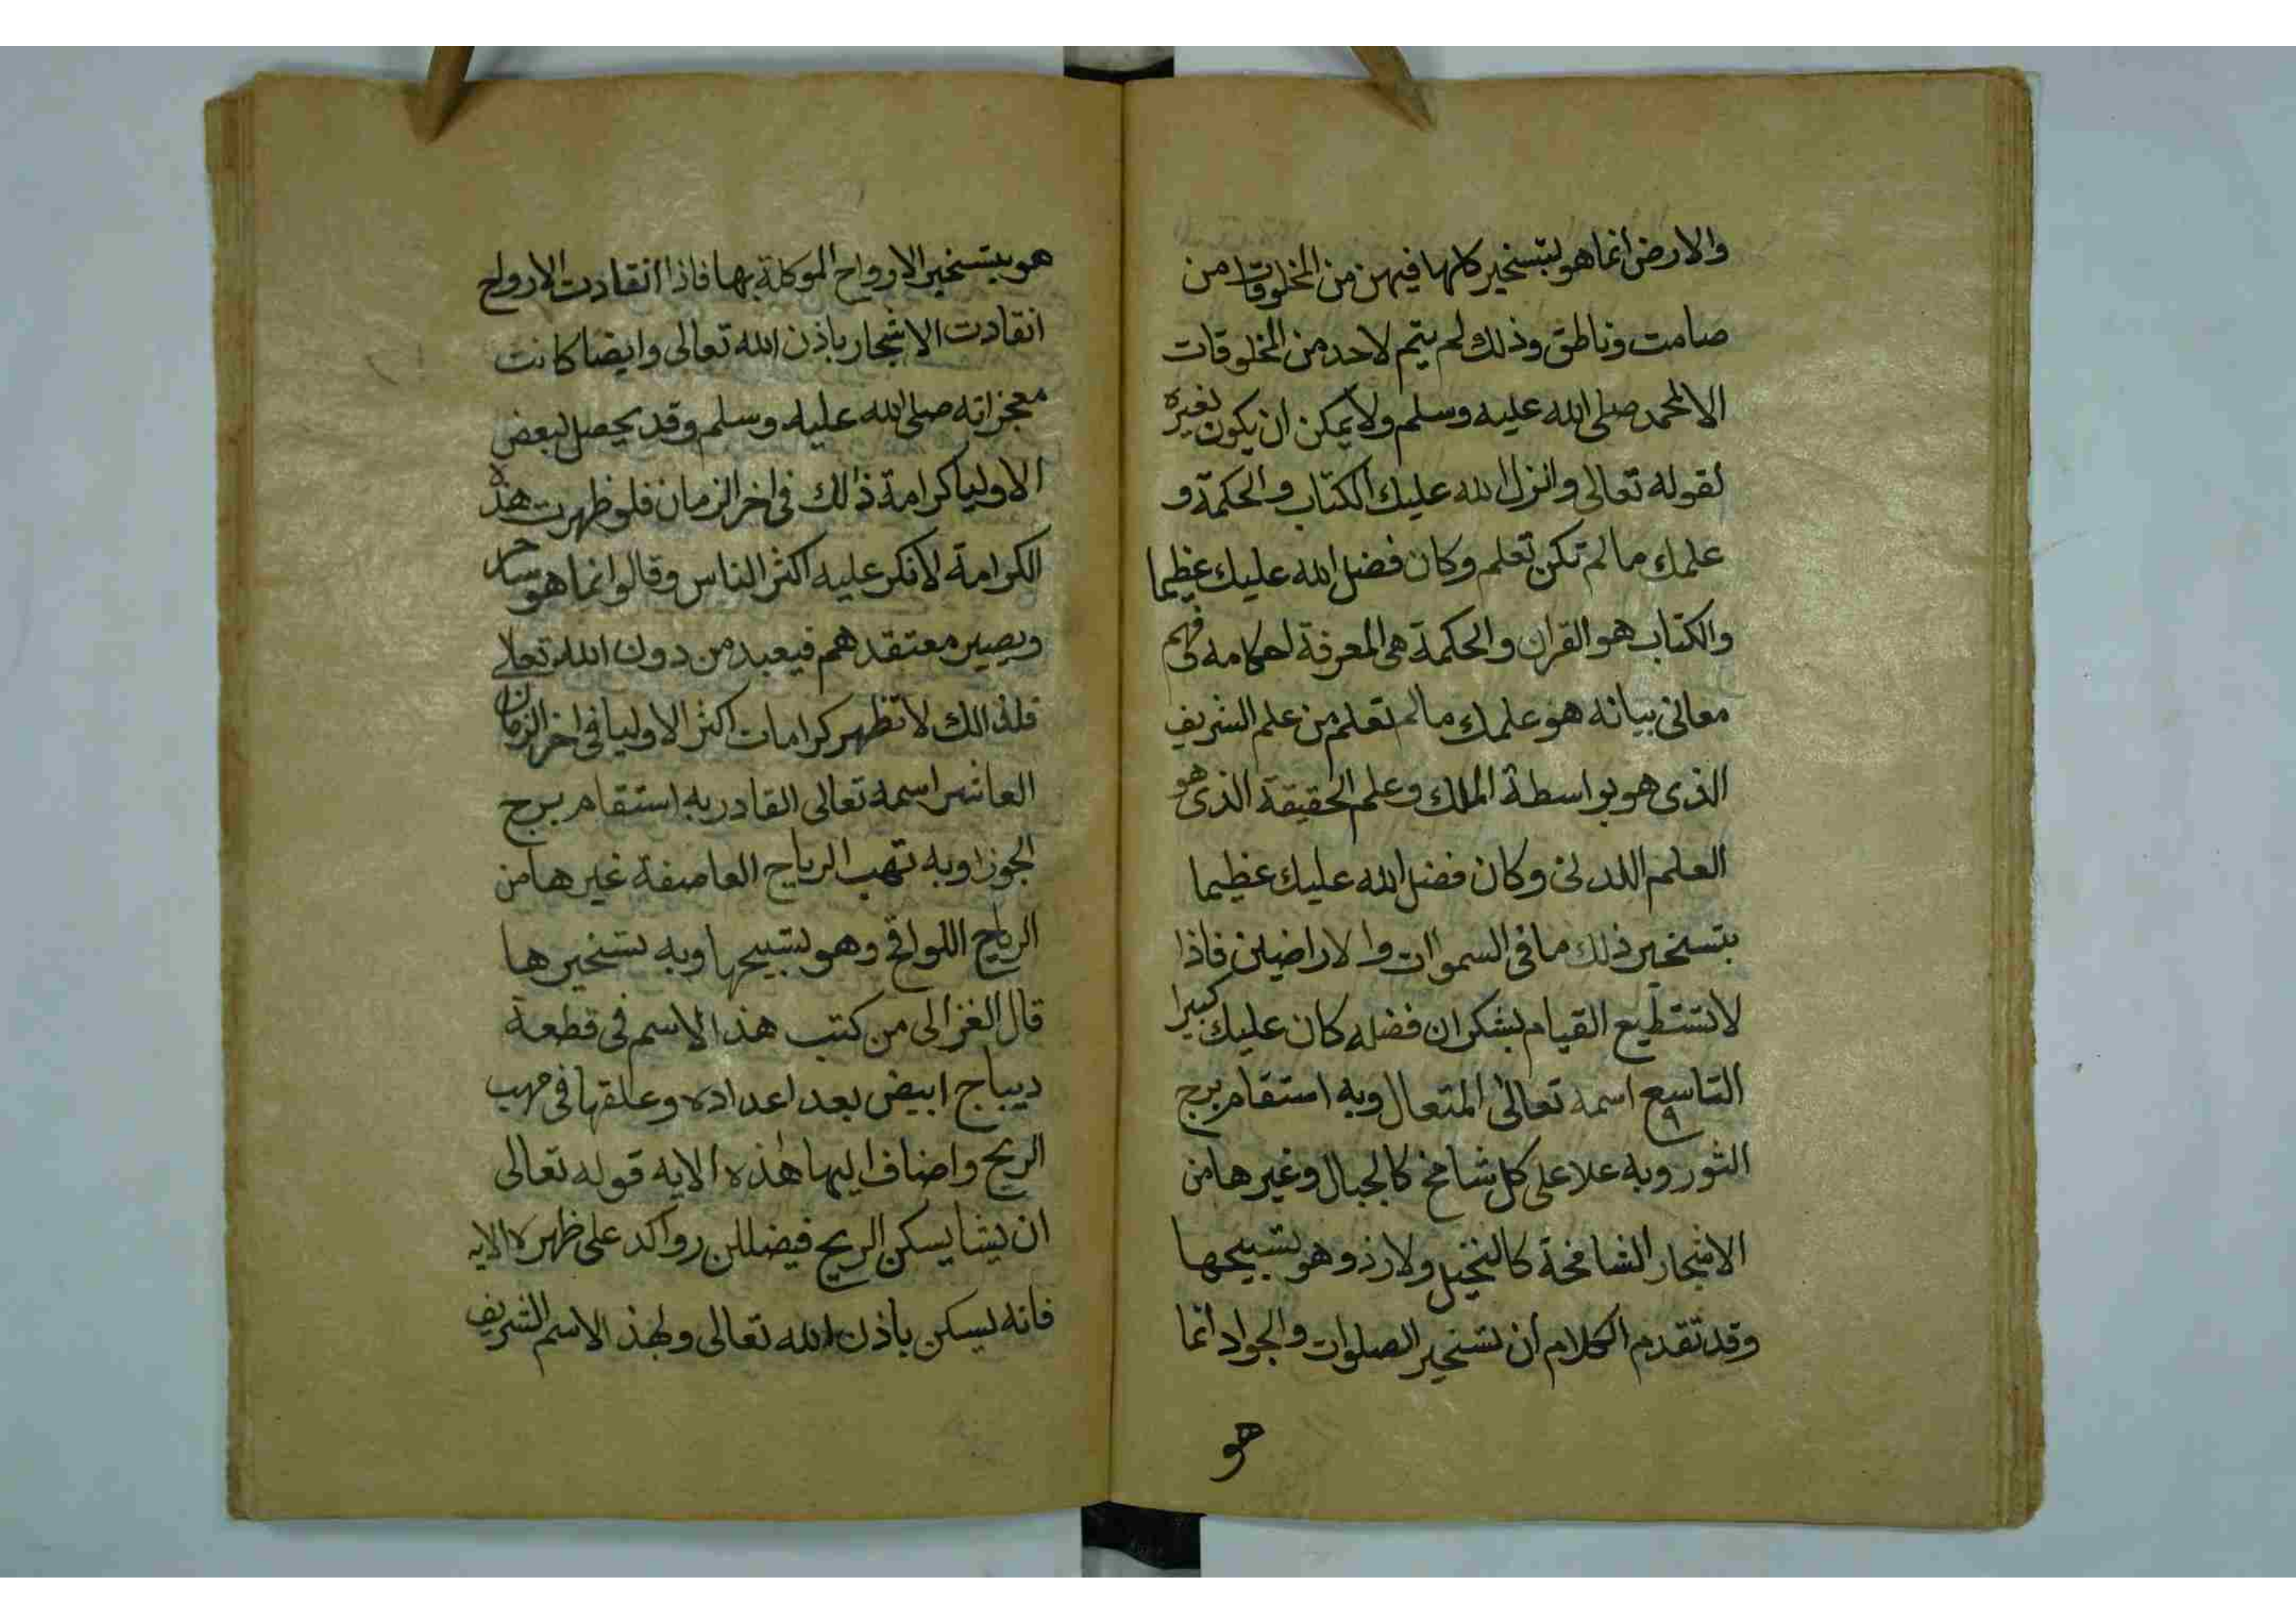 والارض انما هو لبتسخير كلها فيهن من المخلوقات من
صامت وناطق وذلك لم يتم لاحد من المخلوقات
الا لمحمد صلى الله عليه وسلم ولا يمكن ان يكون لغيره
لقوله تعالى وانزل الله عليك الكتاب والحكمة و
علمك مالم تكن تعلم وكان فضل الله عليك عظيما
والكتاب هو القران والحكمة هى المعرفة احكامه فى فهم
معانى بيانه هو علمك مالم تعلم من علم الشريف
الذى هو بواسطة الملك وعلم الحقيقة الذى هو
العلم اللدنى وكان فضل الله عليك عظيما
بتسخير ذلك مافى السموات والاراضين فاذا
لاتستطيع القيام بشكران فضله كان عليك كبيرا
التاسع اسمه تعالى المتعال وبه استقام برج
الثور وبه علا على كل شامخ كالجبال وغيرها من
الاشجار الشامخة كالنخيل ولارذ وهو تسبيحها
وقد تقدم الكلام ان تسخير الصلوات والجواد انما
هو
هو بتسخير الارواح الموكلة بها فاذا انقادت الارواح
انقادت الاشجار باذن الله تعالى وايضا كانت
معجزاته صلى الله عليه وسلم وقد يحصل لبعض
الاوليا كرامة ذالك فى اخر الزمان فلو ظهرت هذه
الكرامة لانكر عليه اكثر الناس وقالوا انما هو ساحر
ويصير معتقدهم فيعبد من دون الله تعالى
فلذالك لا تظهر كرامات اكثر الاوليا فى اخر الزمان
العاشر اسمه تعالى القادر به استقام برج
الجوزا وبه تهب الرياح العاصفة غيرها من
الرياح اللواقح وهو تسبيحها وبه تسخيرها
قال الغزالى من كتب هذا الاسم فى قطعة
ديباج ابيض بعد اعداده وعلقها فى مهب
الريح واضاف اليها هذه الايه قوله تعالى
ان يشا يسكن الريح فيضللن رواكد على ظهره الايه
فانه يسكن باذن الله تعالى ولهذ الاسم الشريف